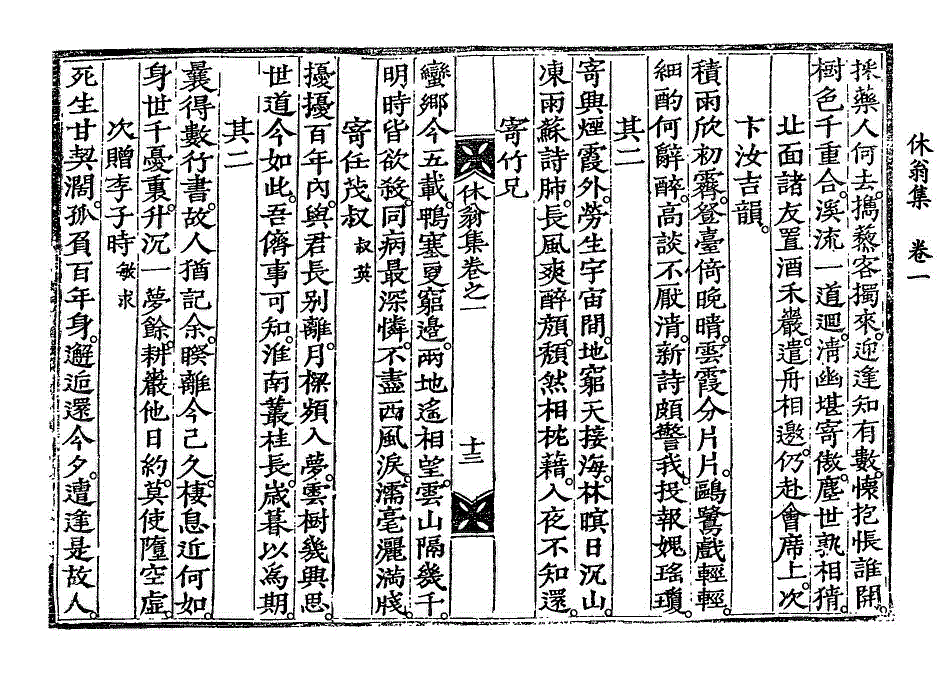 休翁集 卷一
採藥人何去。搗藜客獨來。迎逢知有數。懷抱悵誰開。
樹色千重合。溪流一道迴。淸幽堪寄傲。塵世孰相猜。
北面諸友置酒禾巖。遣舟相邀。仍赴會席上。次
卞汝吉韻。
積雨欣初霽。登臺倚晚晴。雲霞分片片。鷗鷺戲輕輕。
細酌何辭醉。高談不厭淸。新詩頗警我。投報媿瑤瓊。
其二
寄興煙霞外。勞生宇宙間。地窮天接海。林暝日沉山。
凍雨蘇詩肺。長風爽醉顔。頹然相枕藉。入夜不知還。
寄竹兄
休翁集卷之一 十三
蠻鄕今五載。鴨塞更窮邊。兩地遙相望。雲山隔幾千。
明時皆欲殺。同病最深憐。不盡西風淚。濡毫灑滿牋。
寄任茂叔 叔英
擾擾百年內。與君長別離。月樑頻入夢。雲樹幾興思。
世道今如此。吾儕事可知。淮南叢桂長。歲暮以爲期。
其二
曩得數行書。故人猶記余。暌離今已久。棲息近何如。
身世千憂裏。升沉一夢餘。耕巖他日約。莫使墮空虛。
次贈李子時 敏求
死生甘契濶。孤負百年身。邂逅還今夕。遭逢是故人。